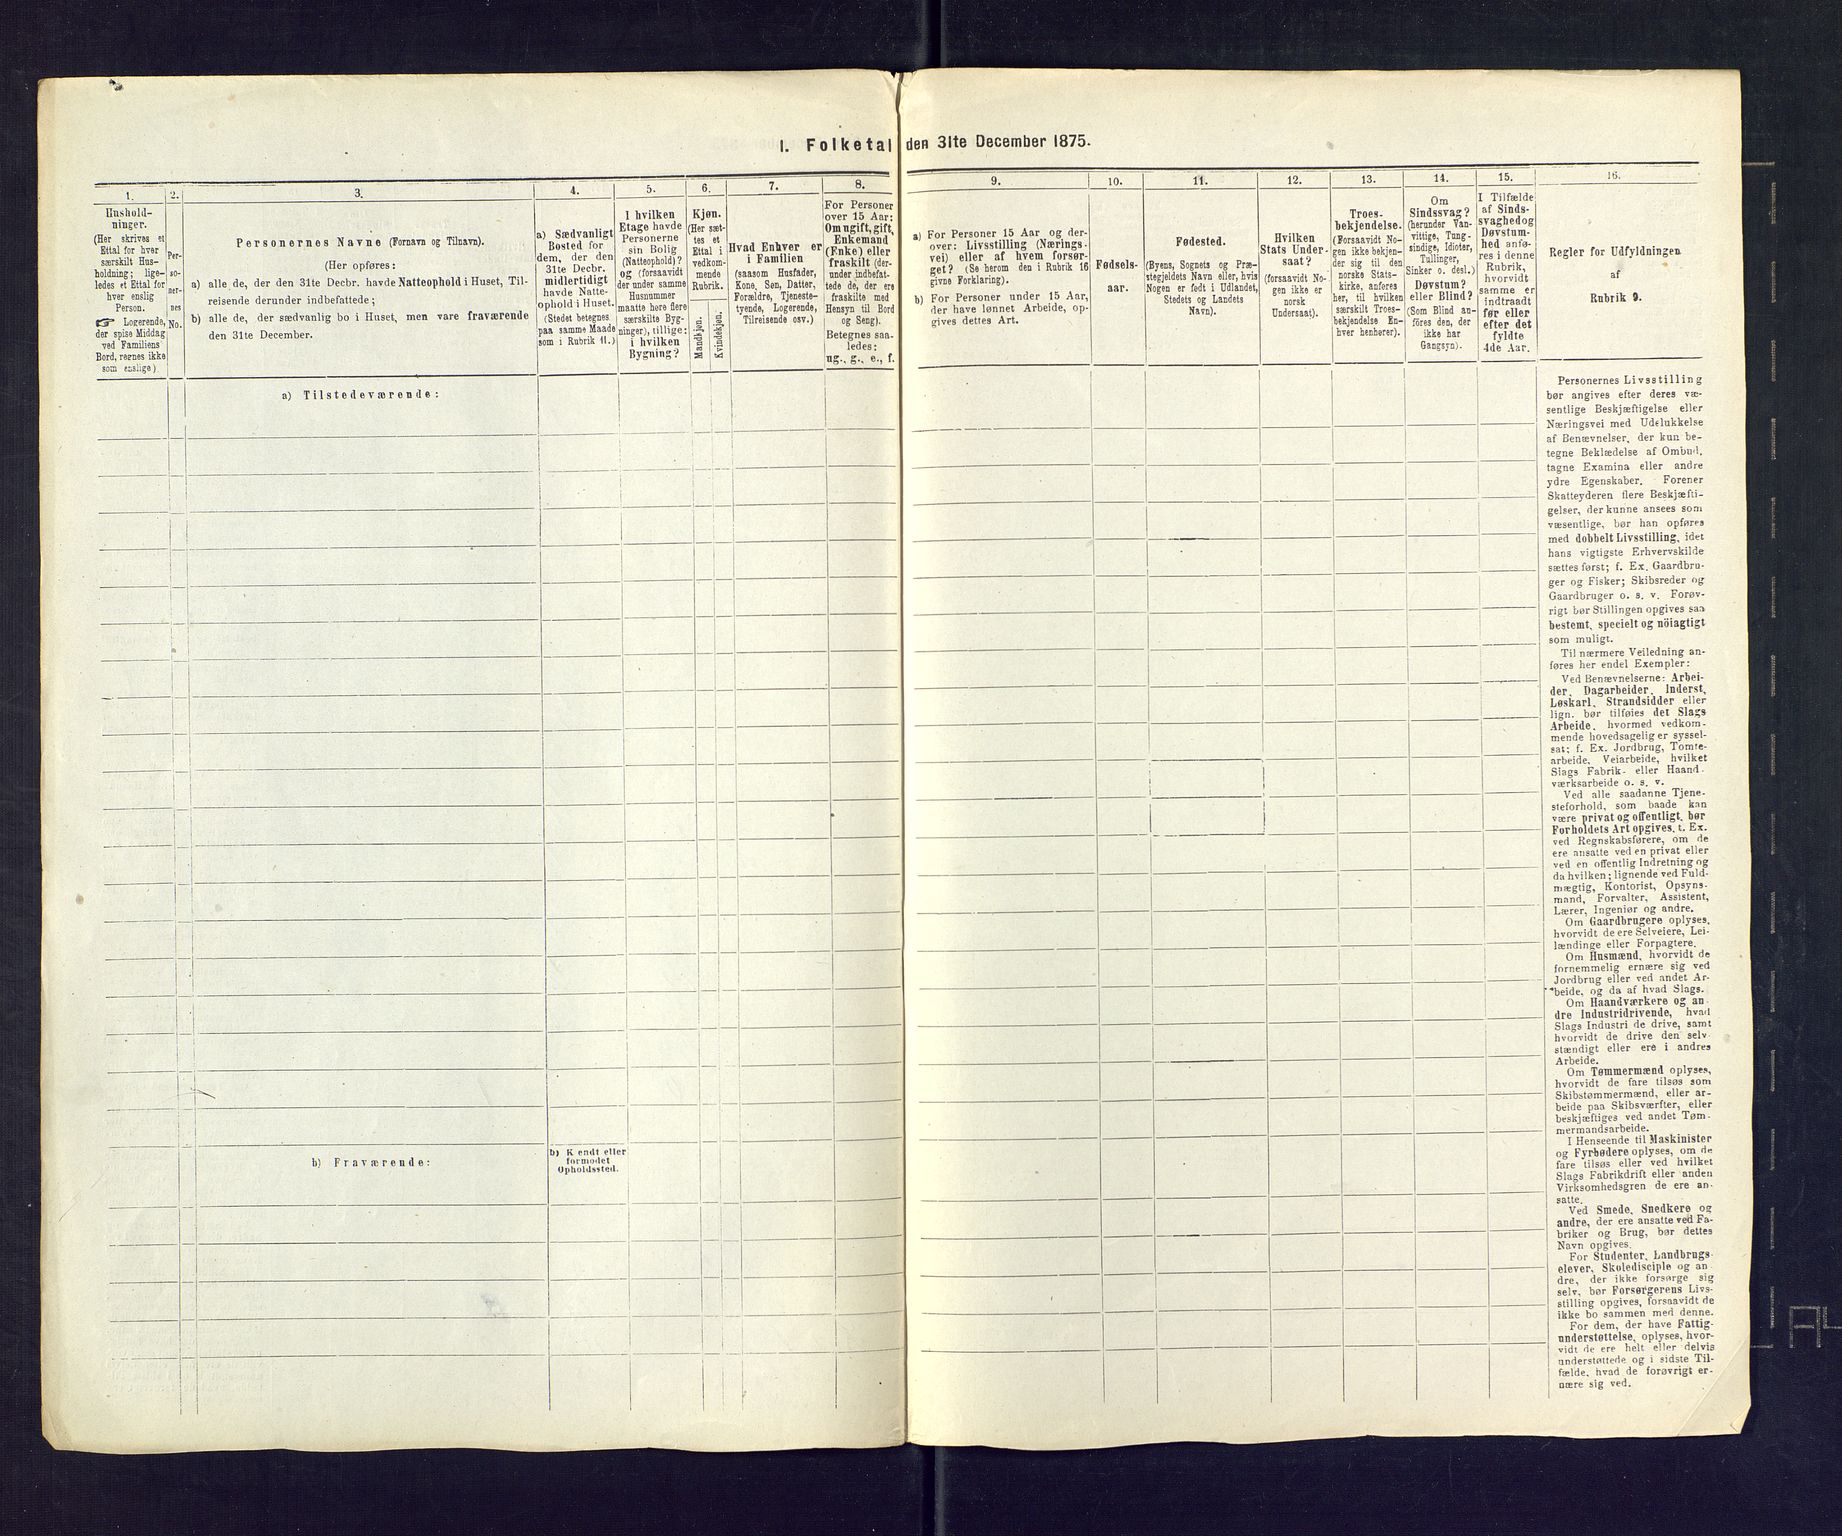 I. Folketal den 31te December 1875.
1.
Hushold-
ninger.
(Her skrives et
Ettal for hver
særskilt Hus-
holdning; lige-
ledes et Ettal for
hver enslig
Person.
☞ Logerende,
der spise Middag
ved Familiens
Bord, regnes ikke
som enslige)
2.
Per-
so-
ner-
nes
No.
3.
Personernes Navne (Fornavn og Tilnavn).
(Her opføres:
a) alle de, der den 31te Decbr. havde Natteophold i Huset, Til-
reisende derunder indbefattede;
b) alle de, der sædvanlig bo i Huset, men vare fraværende
den 31te December.
4.
a) Sædvanligt
Bosted for
dem, der den
31te Decbr.
midlertidigt
havde Natte-
ophold i Huset.
(Stedet betegnes
paa samme Maade
som i Rubrik 11.)
5.
I hvilken
Etage havde
Personerne
sin Bolig
(Natteophold)?
og (forsaavidt
der under samme
Husnummer
maatte here flere
særskilte Byg-
ninger), tillige:
i hvilken
Bygning?
6.
Kjøn.
(Her sæt-
tes et
Ettal i
vedkom-
mende
Rubrik.
Mandkjøn.
Kvindekjøn.
7.
Hvad Enhver er
i Familien
(saasom Husfader,
Kone, Søn, Datter,
Forældre, Tjeneste-
tyende, Logerende,
Tilreisende osv.)
8.
For Personer
over 15 Aar:
Om ugift, gift,
Enkemand
(Enke) eller
fraskilt (der-
under indbefat-
tede de, der ere
fraskilte med
Hensyn til Bord
og Seng).
Betegnes saa-
ledes:
ug., g., e., f.
9.
a) For Personer 15 Aar og der-
over: Livsstilling (Nærings-
vei) eller af hvem forsør-
get? (Se herom den i Rubrik 16
givne Forklaring).
b) For Personer under 15 Aar,
der have lønnet Arbeide, op-
gives dettes Art.
10.
Fødsels-
aar.
11.
Fødested.
(Byens, Sognets og Præ-
stegjeldets Navn eller, hvis
Nogen er født i Udlandet,
Stedets og Landets
Navn).
12.
Hvilken
Stats Under-
saat?
(forsaavidt No-
gen ikke er
norsk
Undersaat).
13.
Troes-
bekjendelse.
(Forsaavidt No-
gen ikke bekjen-
der sig til den
norske Stats-
kirke, anføres
her, til hvilken
særskilt Troes-
bekjendelse En-
hver henhører).
14.
Om
Sindssvag?
(herunder Van-
vittige, Tung-
sindige, Idioter,
Tullinger,
Sinker o. desl.)
Døvstum?
eller Blind?
(Som Blind an-
føres den, der
ikke har
Gangsyn).
15.
I Tilfælde
af Sinds-
svaghed og
Døvstum-
hed anfø-
res i denne
Rubrik,
hvorvidt
samme er
indtraadt
før eller
efter det
fyldte
4de Aar.
16.
Regler for Udfyldningen
af
Rubrik 9.
a) Tilstedeværende:
b) Fraværende:
b) Kjendt eller
formodet
Opholdssted.
Personernes Livsstilling
bør angives efter deres væ-
sentlige Beskjæftigelse eller
Næringsvei med Udelukkelse
af Benævnelser, der kun be-
tegne Beklædelse af Ombud,
tagne Examina eller andre
ydre Egenskaber. Forener
Skatteyderen flere Beskjæfti-
gelser, der kunne ansees som
væsentlige, bør han opføres
med dobbelt Livsstilling, idet
hans vigtigste Erhvervskilde
sættes først; f. Ex. Gaardbru-
ger og Fisker; Skibsreder og
Gaardbruger o. s. v. Forøv-
rigt bør Stillingen opgives saa
bestemt, specielt og nöiagtigt
som muligt.
Til nærmere Veiledning an-
føres her endel Exempler:
Ved Benævnelserne: Arbei-
der, Dagarbeider, Inderst,
Løskarl, Strandsidder eller
lign. bør tilføies det Slags
Arbeide, hvormed vedkom-
mende hovedsagelig er syssel-
sat; f. Ex. Jordbrug, Tomte-
arbeide, Veiarbeide, hvilket
Slags Fabrik- eller Haand-
værksarbeide o. s. v.
Ved alle saadanne Tjene-
steforhold, som baade kan
være privat og offentligt, bør
Forholdets Art opgives, t. Ex.
ved Regnskabsførere, om de
ere ansatte ved en privat eller
ved en offentlig Indretning og
da hvilken; lignende ved Fuld-
mægtig, Kontorist, Opsyns-
mand, Forvalter, Assistent,
Lærer, Ingeniør og andre.
Om Gaardbrugere oplyses,
hvorvidt de ere Selveiere, Lei-
lændinge eller Forpagtere.
Om Husmænd, hvorvidt de
fornemmelig ernære sig ved
Jordbrug eller ved andet Ar-
beide, og da af hvad Slags.
Om Haandværkere og an-
dre Industridrivende, hvad
Slags Industri de drive, samt
hvorvidt de drive den selv-
stændigt eller ere i andres
Arbeide.
Om Tømmermænd oplyses,
hvorvidt de fare tilsøs som
Skibstømmermænd, eller ar-
beide paa Skibsværfter, eller
beskjæftiges ved andet Tøm-
mermandsarbeide.
I Henseende til Maskinister
og Fyrbødere oplyses, om de
fare tilsøs eller ved hvilket
Slags Fabrikdrift eller anden
Virksomhedsgren de ere an-
satte.
Ved Smede, Snedkere og
andre, der ere ansatte ved Fa-
briker og Brug, bør dettes
Navn opgives.
For Studenter, Landbrugs-
elever, Skoledisciple og an-
dre, der ikke forsørge sig
selv, bør Forsørgerens Livs-
stilling opgives, forsaavidt de
ikke bo sammen med denne.
For dem, der have Fattig-
understøttelse, oplyses, hvor-
vidt de ere helt eller delvis
understøttede og i sidste Til-
fælde, hvad de forøvrigt er-
nære sig ved.